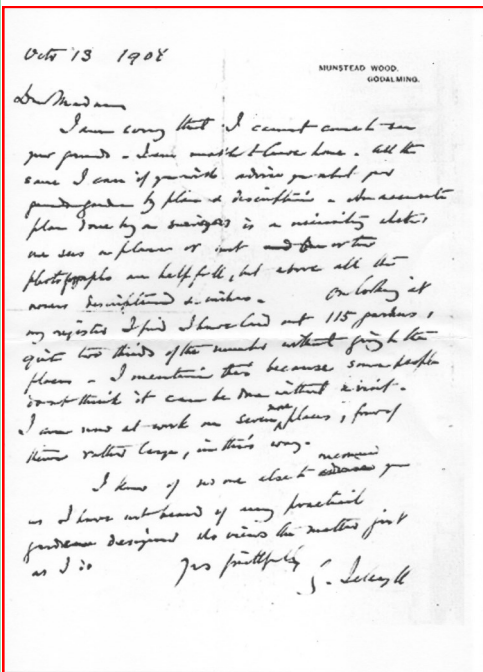 Octr 13 1908
MUNSTEAD WOOD.
GODALMING.
Dr Madam
I am sorry that I cannot come to see
your grounds - I am unable to leave home. All the
same I can if you wish advise you about your
garden by plan & description - An accurate
plan done by a surveyor is a necessity whether
one sees a place or not and one or two
photographs are helpful, but above all the
owners description & wishes. On looking at
my register I find I have laid out 115 gardens,
quite two thirds of the number without going to the
places - I mention this because some people
don't think it can be done without a visit.
I am now at work on seven more places, four of
them rather large, in this way.
I know of no one else to recommend you
as I have not heard of any practical
designer who views the matter just
as I do
Yrs faithfully
G. Jekyll